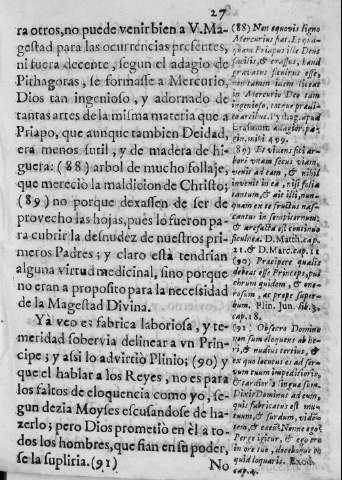 27
ra otros, no puede venir bien a V. Ma-
gestad para las ocurrencias presentes,
ni fuera decente, segun el adagio de
Pithagoras, se formasse a Mercurio,
Dios tan ingenioso, y adornado de
tantas artes de la misma materia que a
Priapo, que aunque tambien Deidad,
era menos sutil, y de madera de hi-
guera: (88) arbol de mucho follaje,
que mereciò la maldicion de Christo;
(89) no porque dexassen de ser de
provecho las hojas, pues lo fueron pa-
ra cubrir la desnudez de nuestros pri-
meros Padres; y claro està tendrian
alguna virtud medicinal, sino porque
no eran a proposito para la necessidad
de la Magestad Divina.
Yà veo es fabrica laboriosa, y te-
meridad sobervia delinear a vn Prin-
cipe; y assi lo advirtiò Plinio; (90) y
que el hablar a los Reyes, no es para
los faltos de eloquencia como yo, se-
gun dezia Moyses escusandose de ha-
zerlo; pero Dios prometiò en èl a to-
dos los hombres, que fian en su poder,
se la supliria. (91)
No
(88) Non equovis ligno
Mercurius fiat.
quam Priapus ille Deus
facilis, & crassus, haud
gravatus ficulnus esse,
tamen idem liceat
in Mercurio Deo tam
ingenioso,
artibus. Pythag. apud
Erasmum adagior. pa-
gin. mihi 499.
89) Et videns fici ar-
borem vnam secus viam,
venit ad eam, & nihil
invenit in ea, nisi folia
tantum, & ait illi, nun-
quam ex te fructus nas-
catur in sempiternum:
& arefacta est continuo
ficulnea. D. Matth. cap.
21. & D. Marc. cap. 11
(90) Præcipere qualis
debeat esse Princeps, pul-
chrum quidem, & one-
rosum, ac prope super-
bum. Plin. Jun. lib. 3.
cap. 18.
(91) Obsecro Domine
non sum eloquens ab he-
ri, & nudius tertius, &
ex quo locutus es ad ser-
vum tuum impeditioris,
& tardioris linguæ sum.
Dixit Dominus ad eum,
quis fabricatus est mu-
tum, & surdum, viden-
tem, & cæcum? Nonne ego?
Perge igitur, & ego ero
in ore tuo, doceboque te
quid loquaris. Exod.
cap. 4.